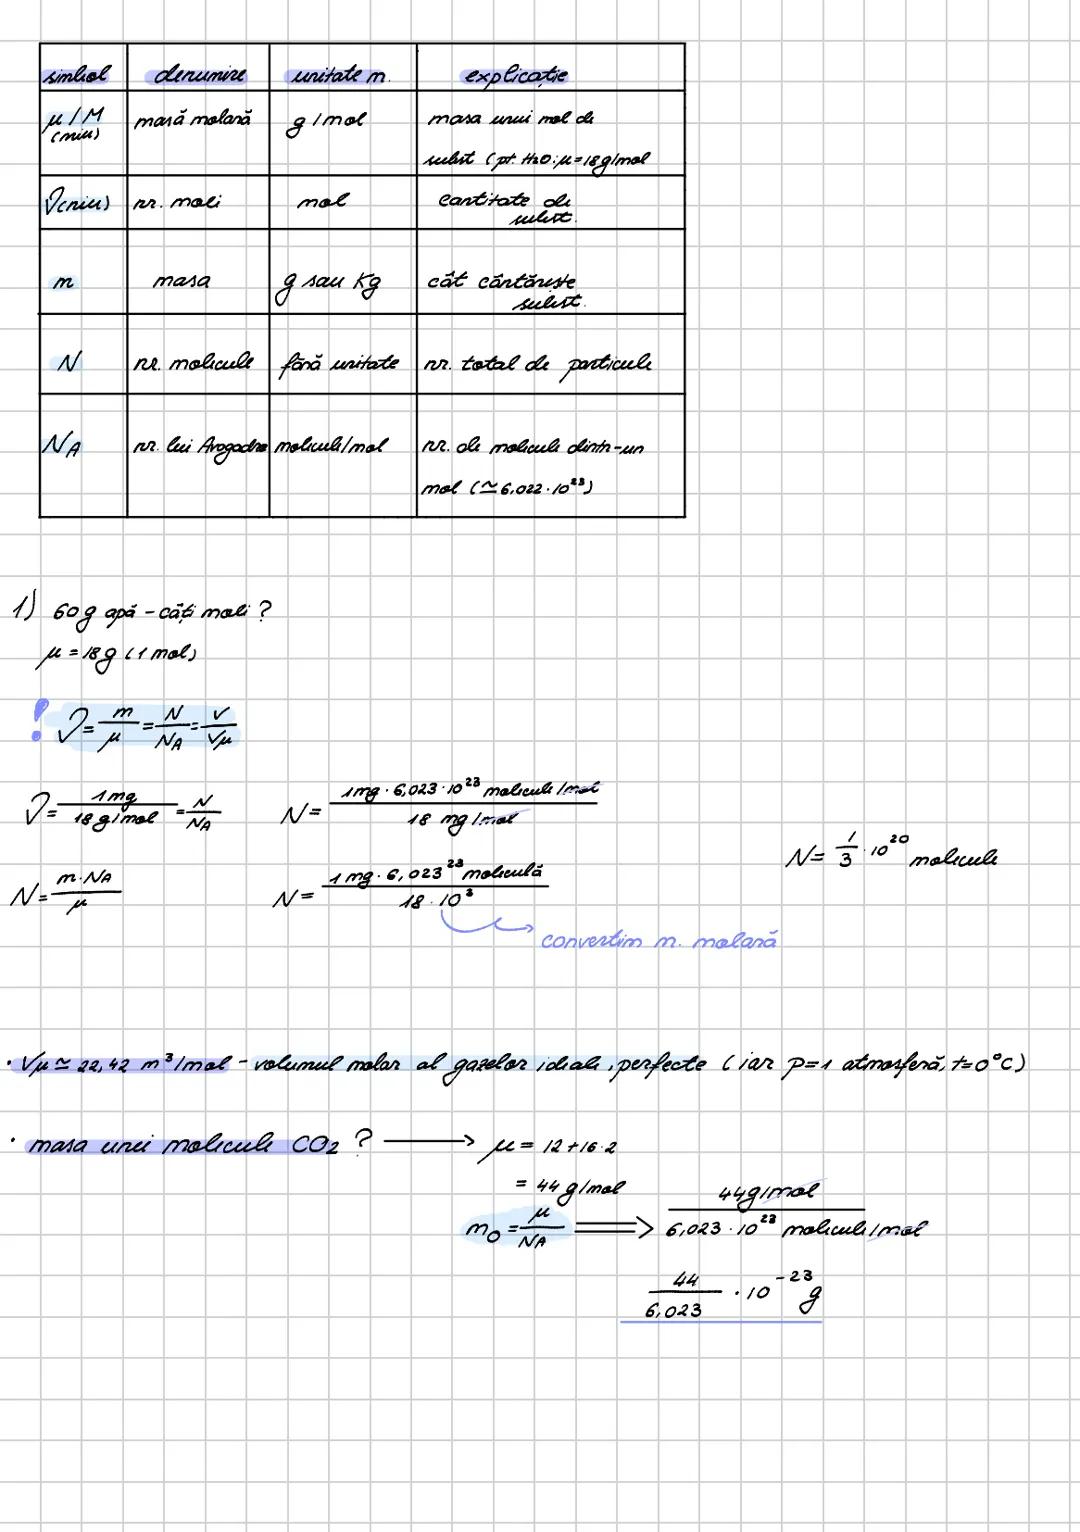 simbol denumire unitate m. explicație
μ/M masă molară g/mol masa unui mol de
(miu) subst (pt. H2O: μ=18g/mol
ν(niu) nr. moli mol cantitate de
subst.
m masa g sau Kg cât cântărește
subst.
N nr. molecule fără unitate nr. total de particule
NA nr. lui Avogadro molecule/mol nr. de molecule dintr-un
mol (≃6,022·10²³)
1) 60g apă - câți moli?
μ = 18g (1 mol)
! ν = m/μ = N/NA = V/Vμ
ν = 1mg / 18 g/mol = N/NA N = 1mg · 6,023·10²³ molecule/mol / 18 mg/mol
N = 1/3 · 10²⁰ molecule
N = m·NA / μ N = 1mg · 6,023²³ moleculă / 18·10³
convertim m. molară
· Vμ ≃ 22,42 m³/mol - volumul molar al gazelor ideale, perfecte (iar p=1 atmosferă, t=0°C)
· masa unei molecule CO2 ? → μ = 12+16·2
= 44 g/mol
m₀ = μ/NA ⟹ 44g/mol / 6,023·10²³ molecule/mol
44/6,023 · 10⁻²³ g